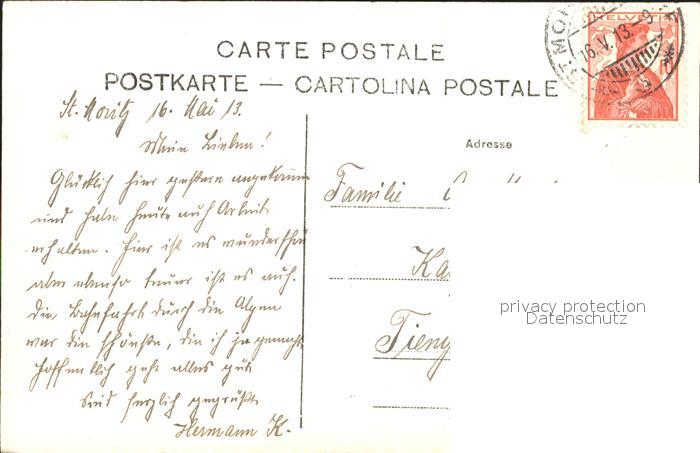 CARTE POSTALE
POSTKARTE — CARTOLINA POSTALE
HELVETIA
16.V.13.-9
St. Moritz 16. Mai 13.
Adresse
Meine Lieben!
Glücklich hier gestern angekommen
und habe heute auch Arbeit
erhalten. Hier ist es wunderschön
aber ebenso teuer ist es auch.
Die Bahnfahrt durch die Alpen
war die schönste, die ich je gemacht
Hoffentlich geht alles gut
Seid herzlich gegrüßt
Hermann K.
Familie
Ka
Tieng
privacy protection
Datenschutz